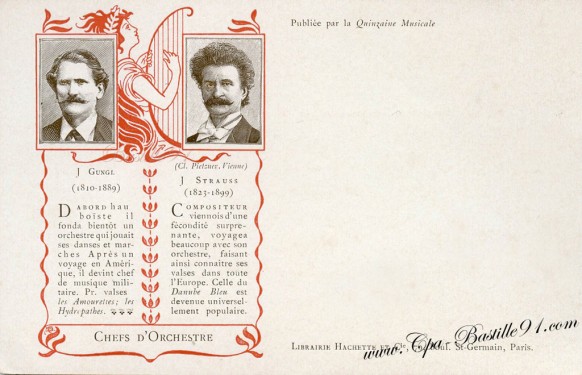 Publiée par la Quinzaine Musicale
J Gungl
(1810-1889)
D'abord hau
boïste il
fonda bientôt un
orchestre qui jouait
ses danses et mar-
ches Après un
voyage en Améri-
que, il devint chef
de musique mili-
taire. Pr. valses
les Amourettes; les
Hydropathes.
(Cl. Pietzner, Vienne)
J Strauss
(1825-1899)
Compositeur
viennois d'une
fécondité surpre-
nante, voyagea
beaucoup avec son
orchestre, faisant
ainsi connaitre ses
valses dans toute
l'Europe. Celle du
Danube Bleu est
devenue universel-
lement populaire.
Chefs d'Orchestre
Librairie Hachette et Cie, St-Germain, Paris.
www.Cpa-Bastille91.com